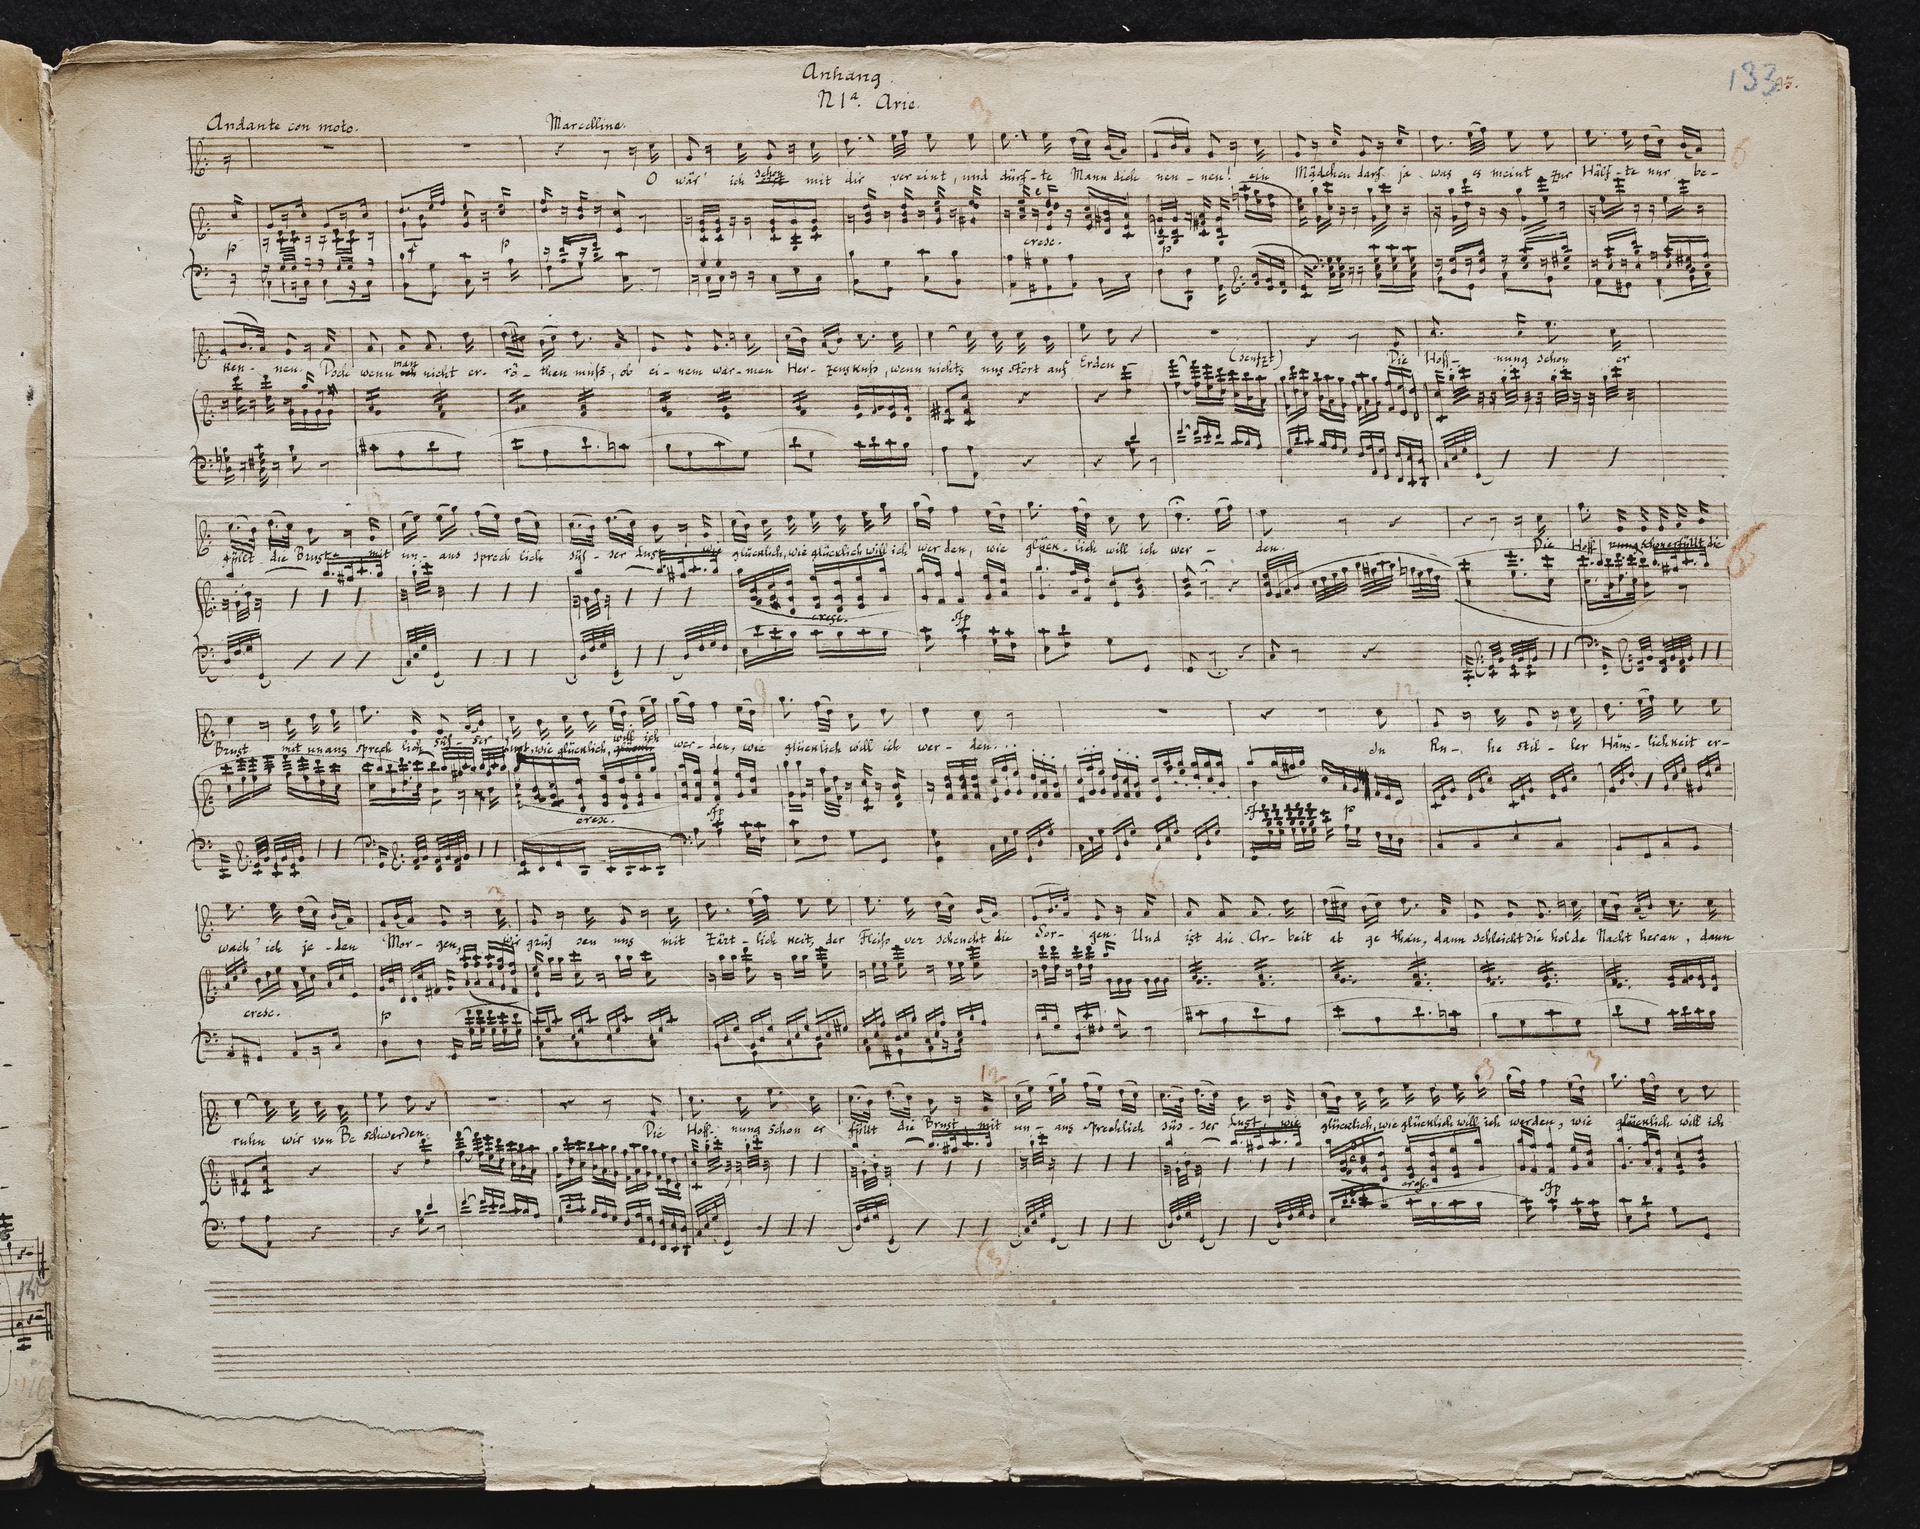 Anhang
N 1ª. Arie.
133
95.
Andante con moto.
Marcelline.
O wär' ich schon mit dir ver eint, und dürf-te Mann dich nen-nen! ein Mädchen darf ja was es meint zur Hälf-te nur be-
p f p cresc. p
ken-nen. Doch wenn man nicht er-rö-then muß, ob ei-nem war-men Her-zenskuß, wenn nichts uns stört auf Erden
(seufzt)
Die Hoff-nung schon er
füllt die Brust mit un-aus sprech lich süs-ser Lust wie glücklich, wie glücklich will ich wer den, wie glück-lich will ich wer-den.
Die Hoff nung schon erfüllt die
cresc. sfp
Brust mit unaus sprech lich süs-ser Lust, wie glücklich, will ich wer-den, wie glücklich will ich wer-den...
In Ru-he stil-ler Häus-lichkeit er-
cresc. sfp sf p
wach' ich je-den Mor-gen, wir grüs sen uns mit Zärt-lich keit, der Fleiss ver scheucht die Sor-gen. Und ist die Ar-beit ab ge than, dann schleicht die holde Nacht heran, dann
cresc. p
ruhn wir von Be schwerden.
Die Hoff-nung schon er füllt die Brust mit un-aus sprechlich süs-ser Lust, wie glücklich, wie glücklich will ich werden, wie glücklich will ich
cresc. sfp